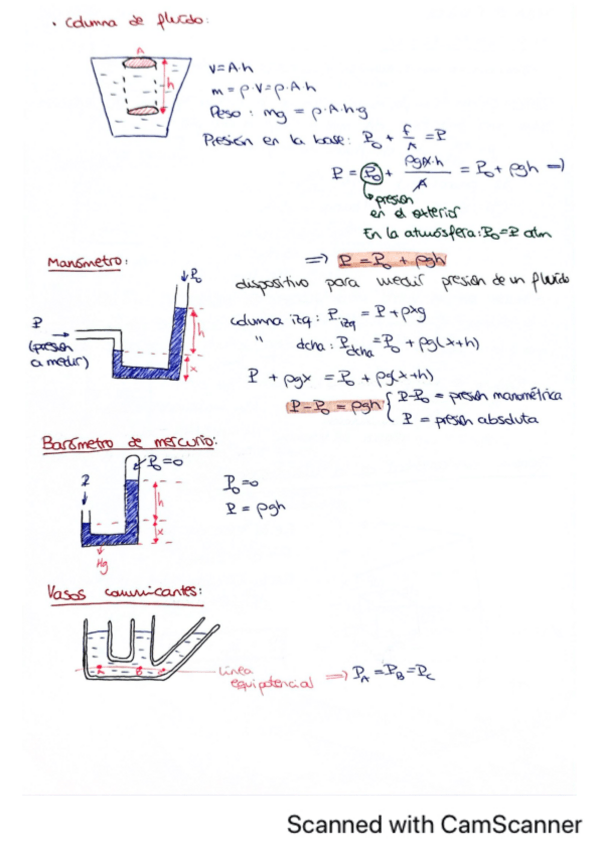 · Columna de fluido:
A
h
V=A·h
m = ρ·V = ρ·A·h
Peso: mg = ρ·A·h·g
Presión en la base: P₀ + F/A = P
P = P₀ + ρgA·h/A = P₀ + ρgh ⇒
presión
en el exterior
En la atmósfera: P₀ = P atm
⇒ P = P₀ + ρgh
Manómetro:
dispositivo para medir presión de un fluido
P₀
P
(presión
a medir)
h
x
columna izq: P izq = P + ρxg
" dcha: P dcha = P₀ + ρg(x+h)
P + ρgx = P₀ + ρg(x+h)
P-P₀ = ρgh { P-P₀ = presión manométrica
P = presión absoluta
Barómetro de mercurio:
P₀=0
P
h
x
Hg
P₀=0
P = ρgh
Vasos comunicantes:
A B C
Línea
equipotencial ⇒ P_A = P_B = P_C
Scanned with CamScanner